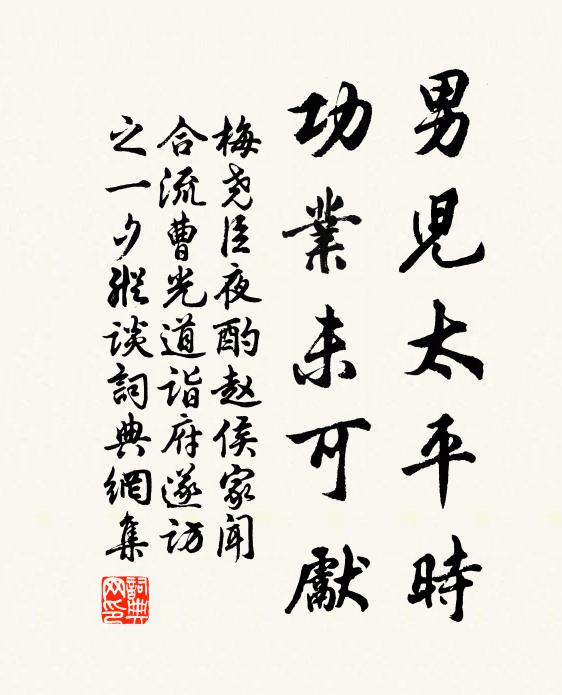 男児太平時
功業未可獻
梅尧臣夜酌赵侯家闻
合流曹光道诣府遂访
之一夕縱谈詞典網集
詞典網印